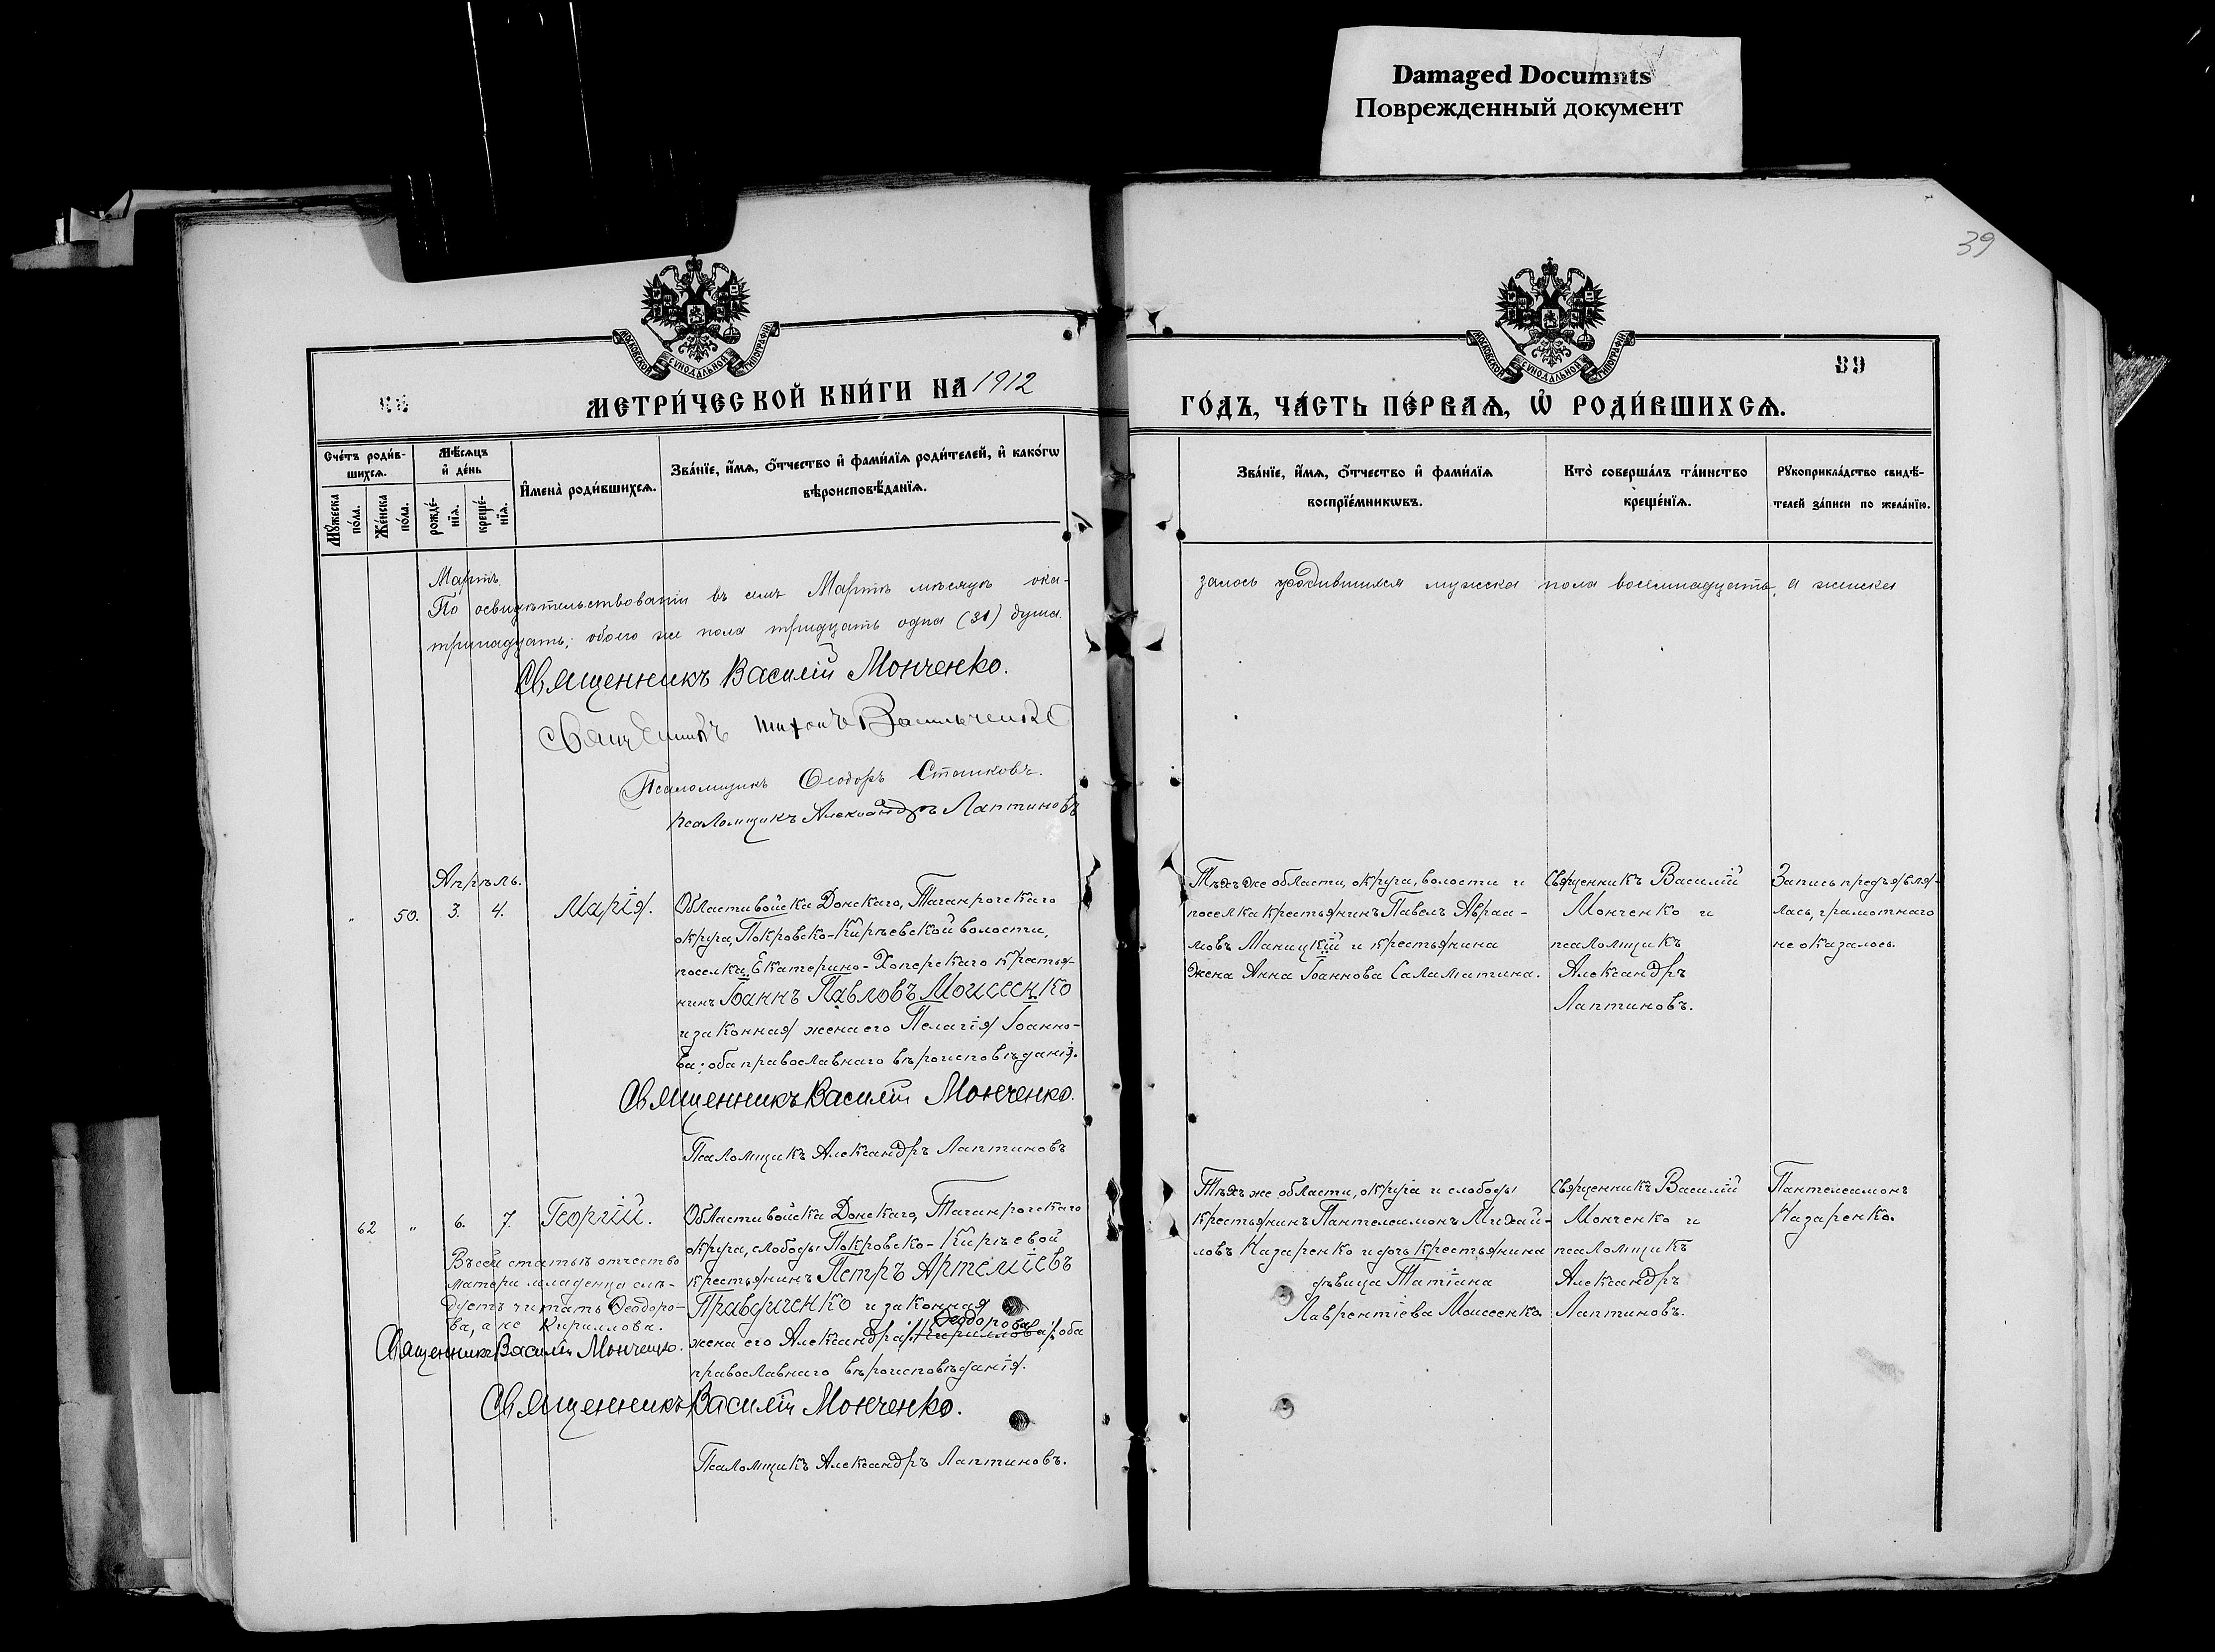 Damaged Documnts
Поврежденный документ
39
МОСКОВСКОЙ СУНОДАЛЬНОЙ ТИПОГРАФІИ
МОСКОВСКОЙ СУНОДАЛЬНОЙ ТИПОГРАФІИ
МЕТРИ́ЧЕСКОЙ КНИ́ГИ НА 1912
39
ГО́ДЪ, ЧА́СТЬ ПЕ́РВАѦ, Ѡ РОДИ́ВШИХСѦ.
Сче́тъ роди́в-
шихсѧ.
Мѣ́сѧцъ
и҆ де́нь
Мꙋ́жеска
по́ла.
Же́нска
по́ла.
рожде́-
нїѧ.
креще́-
нїѧ.
И҆мена̀ роди́вшихсѧ.
Зва́нїе, и҆́мѧ, ѻ҆́тчество и҆ фами́лїѧ роди́телей, и҆ како́гѡ
вѣроисповѣ́данїѧ.
Зва́нїе, и҆́мѧ, ѻ҆́тчество и҆ фами́лїѧ
воспрїе́мникѡвъ.
Кто̀ соверша́лъ та́инство
креще́нїѧ.
Рꙋкоприкла́дство свидѣ́-
телей за́писи по жела́нїю.
Мартъ.
По освидѣтельствованіи въ семъ Мартѣ мѣсяцѣ ока-
залось родившихся мужска пола восемнадцать, а женска
тринадцать; обоего же пола тридцать одна (31) душа.
Священникъ Василій Монченко.
Священникъ Тихонъ Васильченко
Псаломщикъ Ѳеодоръ Сташковъ.
Псаломщикъ Александръ Лаптиновъ
Апрѣль.
" 50. 3. 4. Марія.
Области войска Донскаго, Таганрогскаго
округа, Покровско-Кирѣевской волости,
поселка Екатерино-Хоперскаго крестья-
нинъ Іоаннъ Павловъ Моисеенко
и законная жена его Пелагія Іоанно-
ва; оба православнаго вѣроисповѣданія.
Священникъ Василій Монченко.
Псаломщикъ Александръ Лаптиновъ
Тѣхъ же области, округа, волости и
поселка крестьянинъ Павелъ Авраа-
мовъ Маницкій и крестьянина
жена Анна Іоаннова Саламатина.
Священникъ Василій
Монченко и
псаломщикъ
Александръ
Лаптиновъ.
Запись предъявля-
лась, грамотнаго
не оказалось.
62 " 6. 7. Георгій.
Въ сей статьѣ отчество
матери младенца слѣ-
дуетъ читать Ѳеодоро-
ва, а не Кириллова.
Священникъ Василій Монченко.
Области войска Донскаго, Таганрогскаго
округа, слободы Покровско-Кирѣевой
крестьянинъ Петръ Артеміевъ
Правдиченко и законная
Ѳеодорова
жена его Александра Кириллова; оба
православнаго вѣроисповѣданія.
Священникъ Василій Монченко.
Псаломщикъ Александръ Лаптиновъ.
Тѣхъ же области, округа и слободы
крестьянинъ Пантелеимонъ Михай-
ловъ Назаренко и дочь крестьянина
дѣвица Татіана
Лаврентіева Моисеенко.
Священникъ Василій
Монченко и
псаломщикъ
Александръ
Лаптиновъ.
Пантелеимонъ
Назаренко.